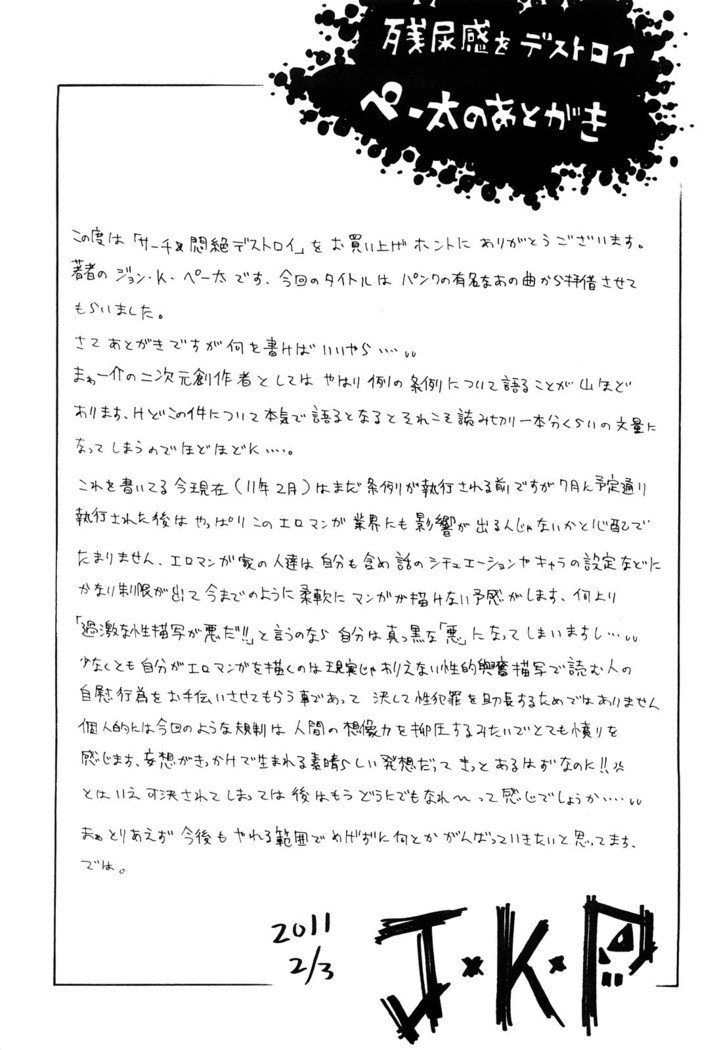 残尿感をデストロイ
ペー太のあとがき
この度は「サーチ&悶絶デストロイ」をお買い上げホントにありがとうございます。
著者のジョン・K・ペー太です、今回のタイトルはパンクの有名なあの曲から拝借させて
もらいました。
さてあとがきですが何を書けばいいやら‥‥
まぁ一介の二次元創作者としてはやはり例の条例について語ることが山ほど
あります、けどこの件について本気で語るとなるとそれこそ読み切り一本分くらいの文量に
なってしまうのでほどほどに‥‥。
これを書いてる今現在(11年2月)はまだ条例が執行される前ですが7月に予定通り
執行された後はやっぱりこのエロマンガ業界にも影響が出るんじゃないかと心配で
たまりません、エロマンガ家の人達は自分も含め話のシチュエーションやキャラの設定などに
かなり制限が出て今までのように柔軟にマンガが描けない予感がします、何より
「過激な性描写が悪だ!!」と言うのなら自分は真っ黒な「悪」になってしまいますし‥‥
少なくとも自分がエロマンガを描くのは現実じゃありえない性的興奮描写で読む人の
自慰行為をお手伝いさせてもらう事であって 決して性犯罪を助長するためではありません
個人的には今回のような規制は人間の想像力を抑圧するみたいでとても憤りを
感じます、妄想がきっかけで生まれる素晴らしい発想だってきっとあるはずなのに!!
とはいえ可決されてしまっては後はもうどうにでもなれ〜って感じでしょうか‥‥
まぁとりあえず今後もやれる範囲でめげずに何とかがんばっていきたいと思ってます、
では。
2011
2/3
J×K×P